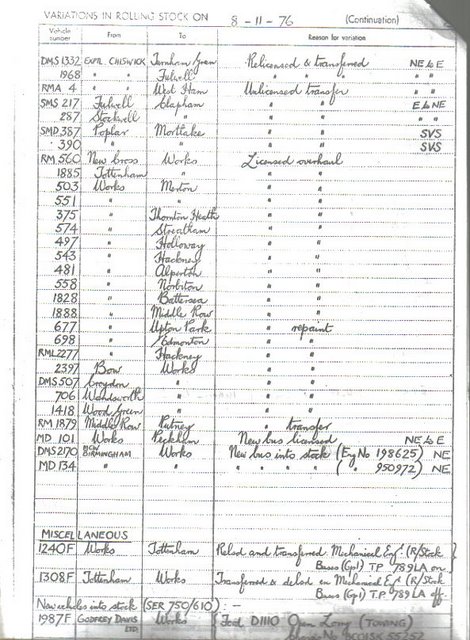 VARIATIONS IN ROLLING STOCK ON 8-11-76 (Continuation)
Vehicle number From To Reason for variation
DMS 1332 EXPTL. CHISWICK Turnham Green Relicensed & transferred NE to E
1968 " " Fulwell " " " "
RMA 4 " " West Ham Unlicensed transfer " "
SMS 217 Fulwell Clapham " " E to NE
287 Stockwell " " " " "
SMD 387 Poplar Mortlake " " SVS
" 390 " " " " SVS
RM 560 New Cross Works Licensed overhaul
1885 Tottenham " " "
503 Works Merton " "
551 " " " "
375 " Thornton Heath " "
574 " Streatham " "
497 " Holloway " "
543 " Hackney " "
481 " Alperton " "
558 " Norbiton " "
1828 " Battersea " "
1888 " Middle Row " "
677 " Upton Park " repaint
698 " Edmonton " "
RML 2277 " Hackney " "
2397 Bow Works " "
DMS 507 Croydon " " "
706 Wandsworth " " "
1418 Wood Green " " "
RM 1879 Middle Row Putney " transfer
MD 101 Works Peckham New bus licensed NE to E
DMS 2170 MCW BIRMINGHAM Works New bus into stock (Eng No 198625) NE
MD 134 " " " " " " ( " 950972) NE
MISCELLANEOUS
1240F Works Tottenham Relcd and transferred Mechanical Engr. (R/Stock
Buses (Gpl) T.P 789LA on
1308F Tottenham Works Transferred & delcd on Mechanical Engr. (R/Stk
Buses (Gpl) T.P. 789LA off.
New vehicles into stock (SER 750/610) : -
1987F GODFREY DAVIS LTD. Works Ford D1110 Open Lorry (TOWING)